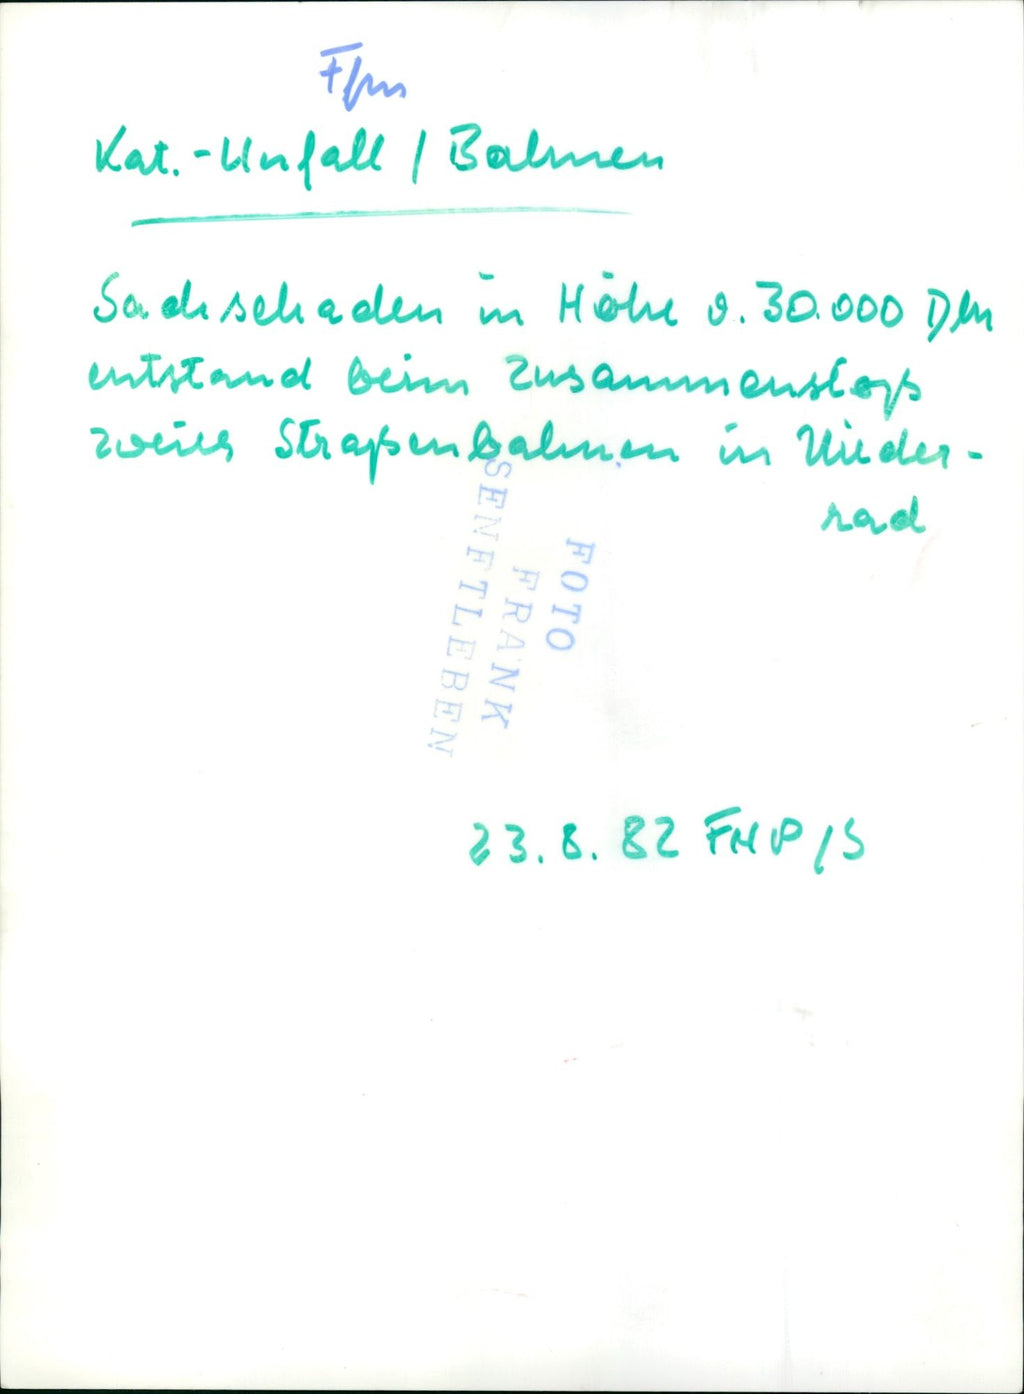 Ffm
Kat.-Unfall / Bahnen
Sachschaden in Höhe v. 30.000 DM
entstand beim Zusammenstoß
zweier Straßenbahnen in Nieder-
rad
FOTO
FRANK
SENFTLEBEN
23.8.82 FNP/S